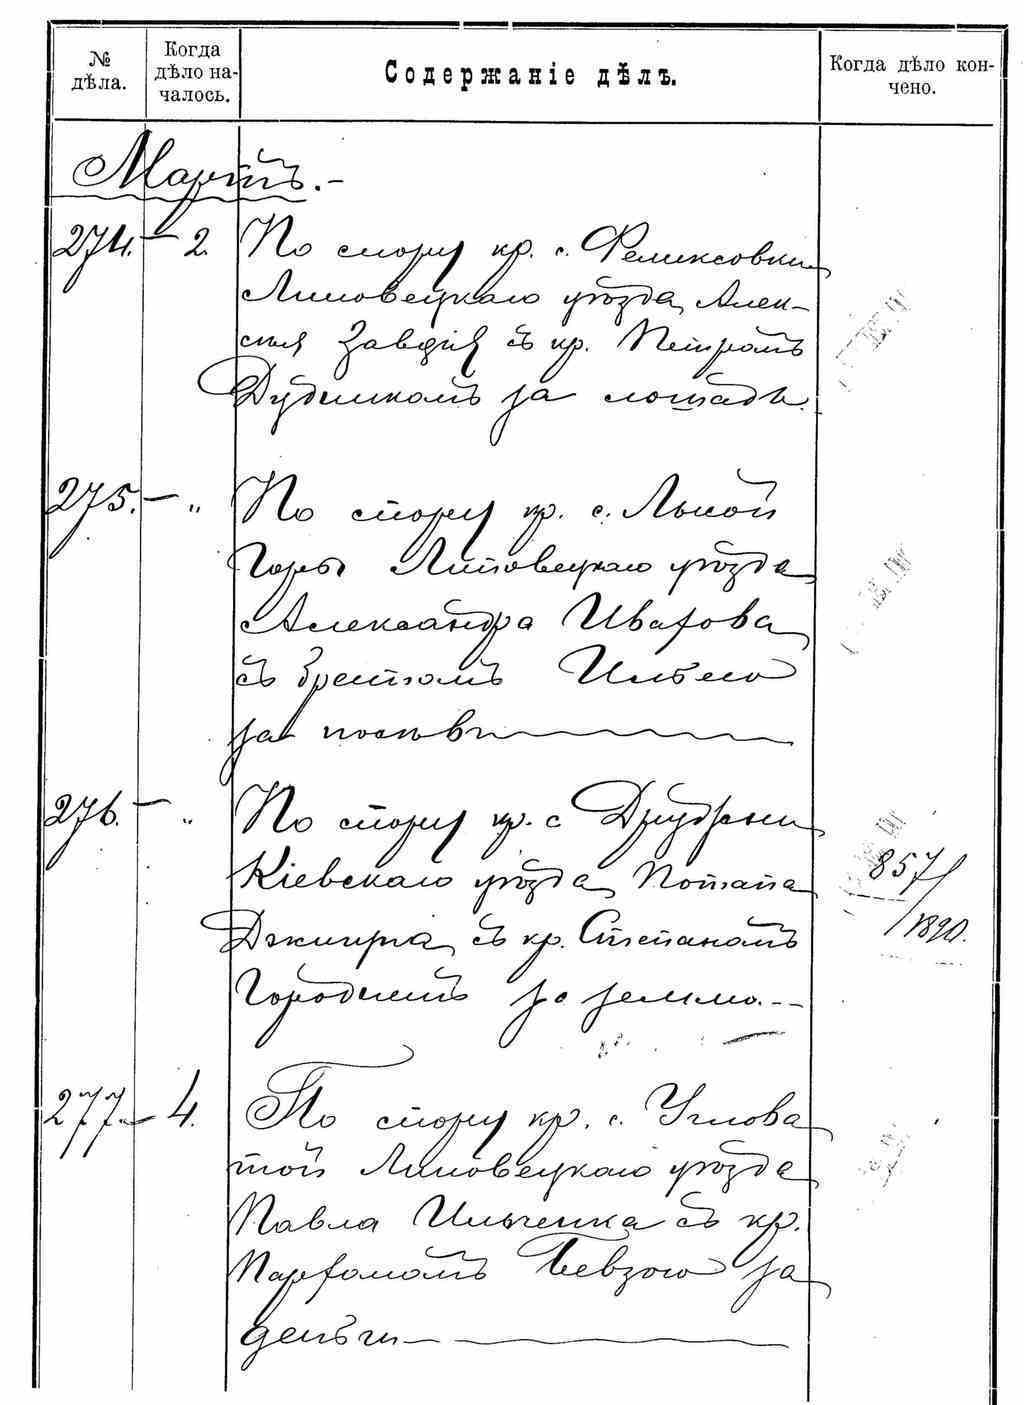 № дѣла.
Когда дѣло началось.
Содержаніе дѣлъ.
Когда дѣло кончено.
Мартъ.-
274. – 2. По спору кр. с. Феликсовки
Липовецкаго уѣзда Алек-
сѣя Завдія съ кр. Петромъ
Дудникомъ за лошадь.
275. – „ По спору кр. с. Лысой
Горы Липовецкаго уѣзда
Александра
съ братомъ
за посѣвъ
276. – „ По спору кр. с
Кіевскаго уѣзда Потапа
съ кр. Степаномъ
за землю.--
857/1890.
277. – 4. По спору кр. с. Углова
той Липовецкаго уѣзда
Павла Ильченка съ кр.
Парфомомъ Бевзою за
деньги